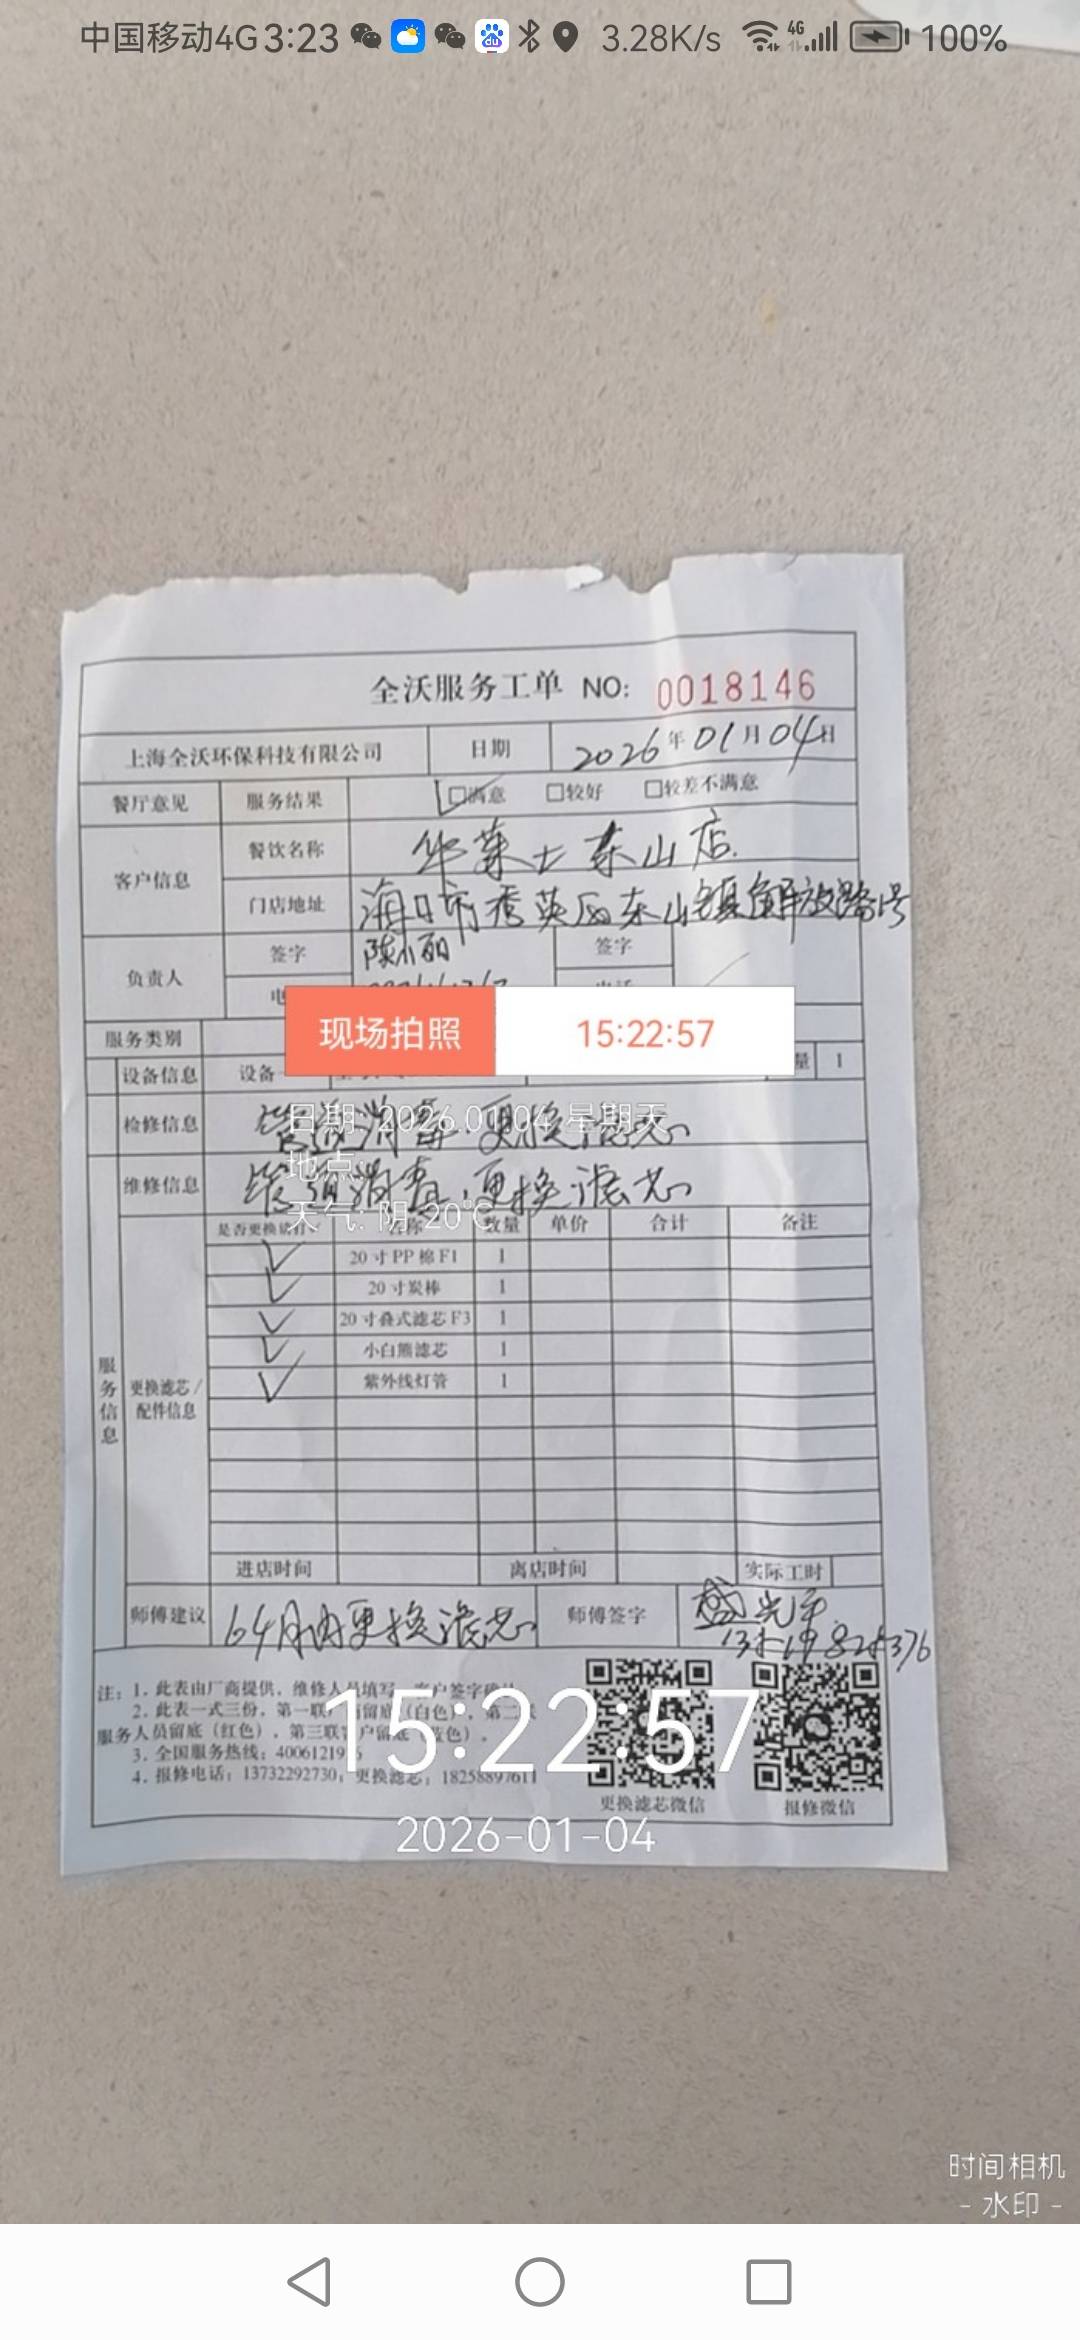 中国移动4G 3:23 3.28K/s 4G 100%
全沃服务工单 NO: 0018146
上海全沃环保科技有限公司 日期 2026年01月04日
餐厅意见 服务结果 □满意 □较好 □较差不满意
客户信息 餐饮名称 华莱士东山店
门店地址 海口市秀英区东山镇解放路号
负责人 签字 陈小丽 签字
现场拍照 15:22:57
服务类别
设备信息 设备 量 1
检修信息 管道消毒.更换滤芯
日期: 2026.01.04 星期天
地点:
维修信息 管道消毒.更换滤芯
天气: 阴 20℃
是否更换 数量 单价 合计 备注
20寸PP棉F1 1
20寸炭棒 1
20寸叠式滤芯F3 1
小白熊滤芯 1
紫外线灯管 1
服务信息
更换滤芯/
配件信息
进店时间 离店时间 实际工时
师傅建议 6个月内更换滤芯 师傅签字 盛光
注: 1. 此表由厂商提供, 维修人员填写, 客户签字
2. 此表一式三份, 第一联 留底(白色), 第二联
服务人员留底(红色), 第三联客户留底(蓝色).
3. 全国服务热线: 4006121
4. 报修电话: 13732292730, 更换滤芯: 18258897611
15:22:57
更换滤芯微信 报修微信
2026-01-04
时间相机
- 水印 -